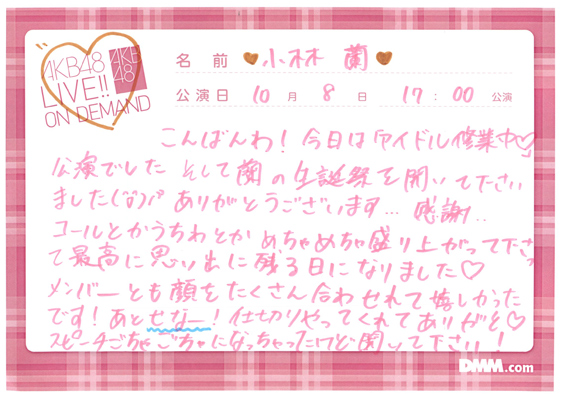 AKB48
LIVE!!
ON DEMAND
AKB
48
名前 小林 蘭
公演日 10月 8日 17:00 公演
こんばんわ! 今日は「アイドル修業中♡」
公演でした そして蘭の生誕祭を開いて下さい
ました ありがとうございます... 感謝..
コールとかうちわとかめちゃめちゃ盛り上がって下さっ
て最高に思い出に残る日になりました♡
メンバーとも顔をたくさん合わせれて嬉しかった
です! あとせなー! 仕切りやってくれてありがと♡
スピーチごちゃごちゃになっちゃったけど聞いて下さい!
DMM.com